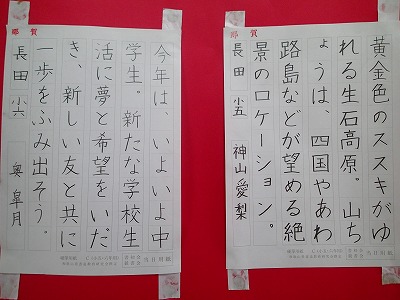 那賀
黄金色のススキがゆ
れる生石高原。山ち
ょうは、四国やあわ
路島などが望める絶
景のロケーション。
長田 小五 神山愛梨
当日用紙
那賀
今年は、いよいよ中
学生。新たな学校生
活に夢と希望をいだ
き、新しい友と共に
一歩をふみ出そう。
長田 小六 奥皐月
当日用紙